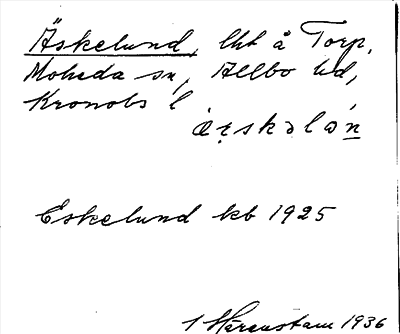 Äskelund, lht å Torp,
Moheda sn, Allbo hd,
Kronobs l
Eskelund kb 1925
1 Härenstam 1936